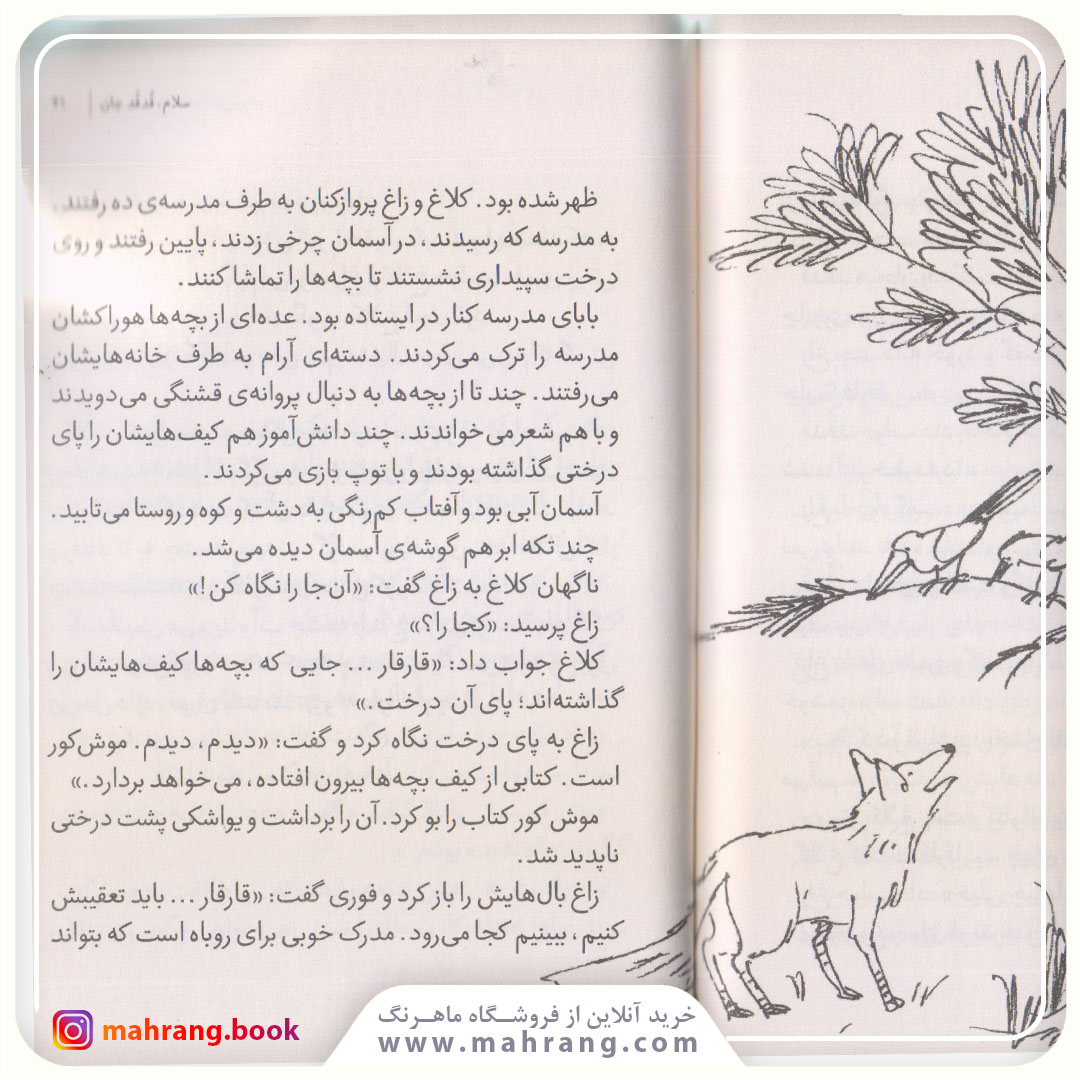 سلام، قدقد جان | ۴۱
ظهر شده بود. کلاغ و زاغ پروازکنان به طرف مدرسه‌ی ده رفتند.
به مدرسه که رسیدند، در آسمان چرخی زدند، پایین رفتند و روی
درخت سپیداری نشستند تا بچه‌ها را تماشا کنند.
بابای مدرسه کنار در ایستاده بود. عده‌ای از بچه‌ها هوراکشان
مدرسه را ترک می‌کردند. دسته‌ای آرام به طرف خانه‌هایشان
می‌رفتند. چند تا از بچه‌ها به دنبال پروانه‌ی قشنگی می‌دویدند
و با هم شعر می‌خواندند. چند دانش‌آموز هم کیف‌هایشان را پای
درختی گذاشته بودند و با توپ بازی می‌کردند.
آسمان آبی بود و آفتاب کم‌رنگی به دشت و کوه و روستا می‌تابید.
چند تکه ابر هم گوشه‌ی آسمان دیده می‌شد.
ناگهان کلاغ به زاغ گفت: «آن‌جا را نگاه کن!»
زاغ پرسید: «کجا را؟»
کلاغ جواب داد: «قارقار ... جایی که بچه‌ها کیف‌هایشان را
گذاشته‌اند؛ پای آن درخت.»
زاغ به پای درخت نگاه کرد و گفت: «دیدم، دیدم. موش‌کور
است. کتابی از کیف بچه‌ها بیرون افتاده، می‌خواهد بردارد.»
موش کور کتاب را بو کرد. آن را برداشت و یواشکی پشت درختی
ناپدید شد.
زاغ بال‌هایش را باز کرد و فوری گفت: «قارقار ... باید تعقیبش
کنیم، ببینیم کجا می‌رود. مدرک خوبی برای روباه است که بتواند
mahrang.book
خرید آنلاین از فروشگاه ماهرنگ
www.mahrang.com